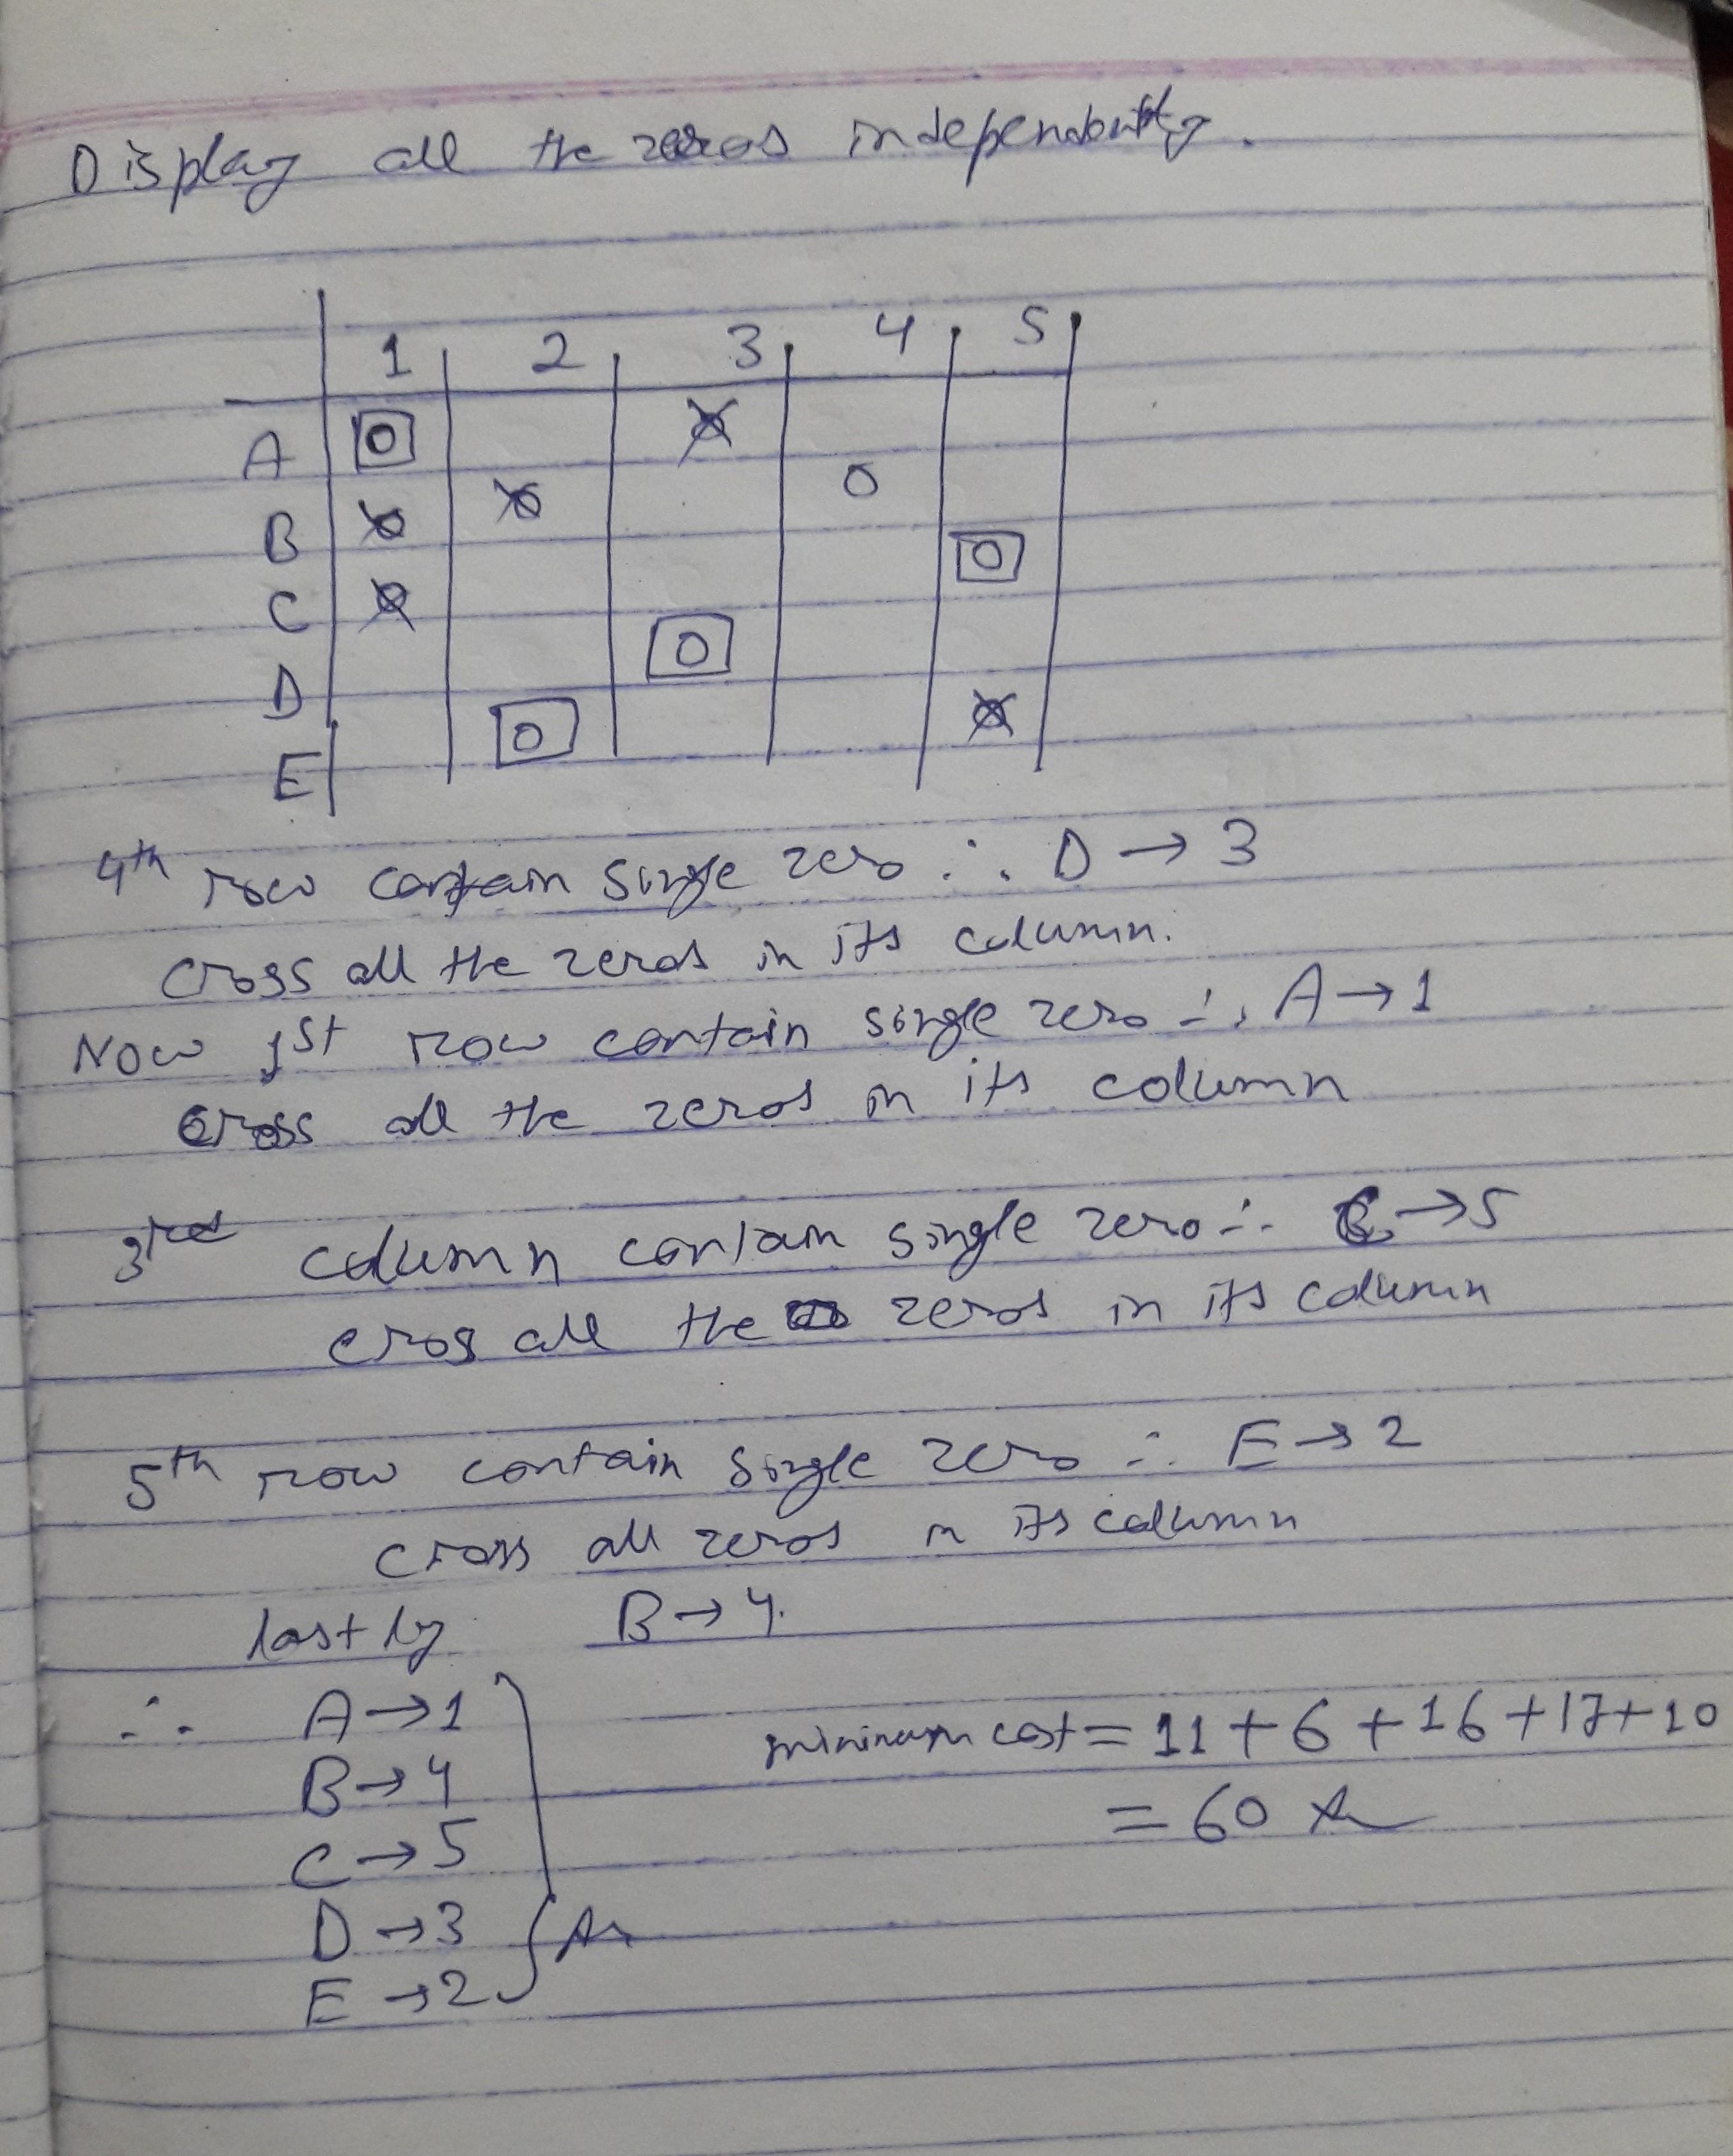 Display all the zeros independently.
1 2 3 4 5
A 0 0
B 0 0 0
C 0 0
D 0
E 0 0
4th row contain single zero ∴ D → 3
cross all the zeros in its column.
Now 1st row contain single zero ∴ A → 1
cross all the zeros in its column
3rd column contain single zero ∴ C → 5
cros all the zeros in its column
5th row contain single zero ∴ E → 2
cross all zeros in its column
lastly B → 4.
∴ A → 1
B → 4
C → 5
D → 3
E → 2
minimum cost = 11 + 6 + 16 + 17 + 10
= 60